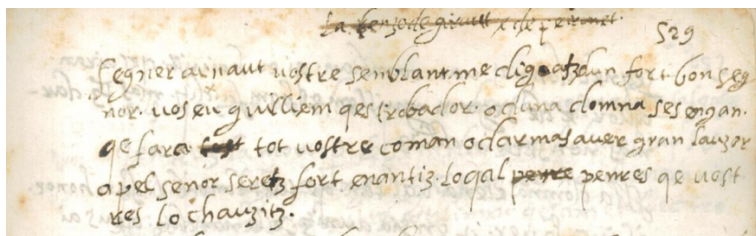 la tenzo de giraut e de peironet.
529
Segner arnaut vostre semblant me digatz dun fort bon seg
nor. vos en guilliem qes trobador. o duna domna ses engan.
qe fara tot vostre coman o darmas aver gran lauzor
apel senor seretz fort enantiz loqal penre penres qe vost
res lo chauzitz.